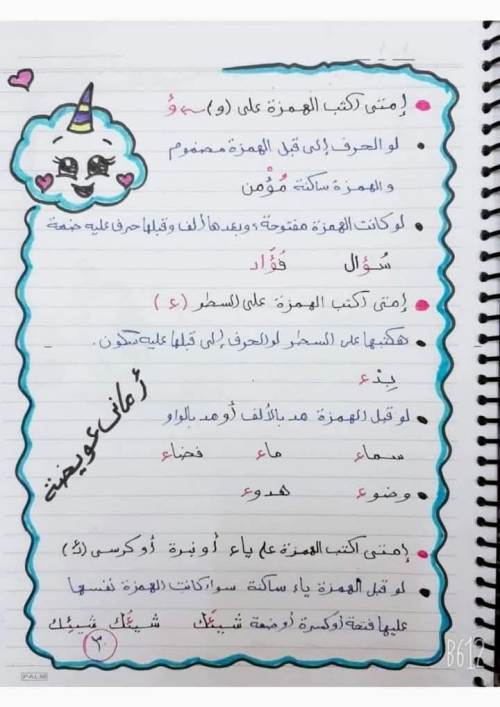 إمتى اكتب الهمزة على (و) ـؤ
لو الحرف إلى قبل الهمزة مضموم
والهمزة ساكنة مُؤْمن
لو كانت الهمزة مفتوحة وبعدها ألف وقبلها حرف عليه ضمة
سُؤال فُؤَاد
إمتى اكتب الهمزة على السطر (ء)
هكتبها على السطر لو الحرف إلى قبلها عليه سكون.
بدْء
لو قبل الهمزة مد بالألف أو مد بالواو
سماء ماء فضاء
وضوء هدوء
أمانى عويضة
إمتى اكتب الهمزة علي ياء أو نبرة أو كرسى (ئ)
لو قبل الهمزة ياء ساكنة سواء كانت الهمزة نفسها
عليها فتحة أو كسرة أو ضمة شيئَك شيئُك شيئِك
٣
B612
PALM